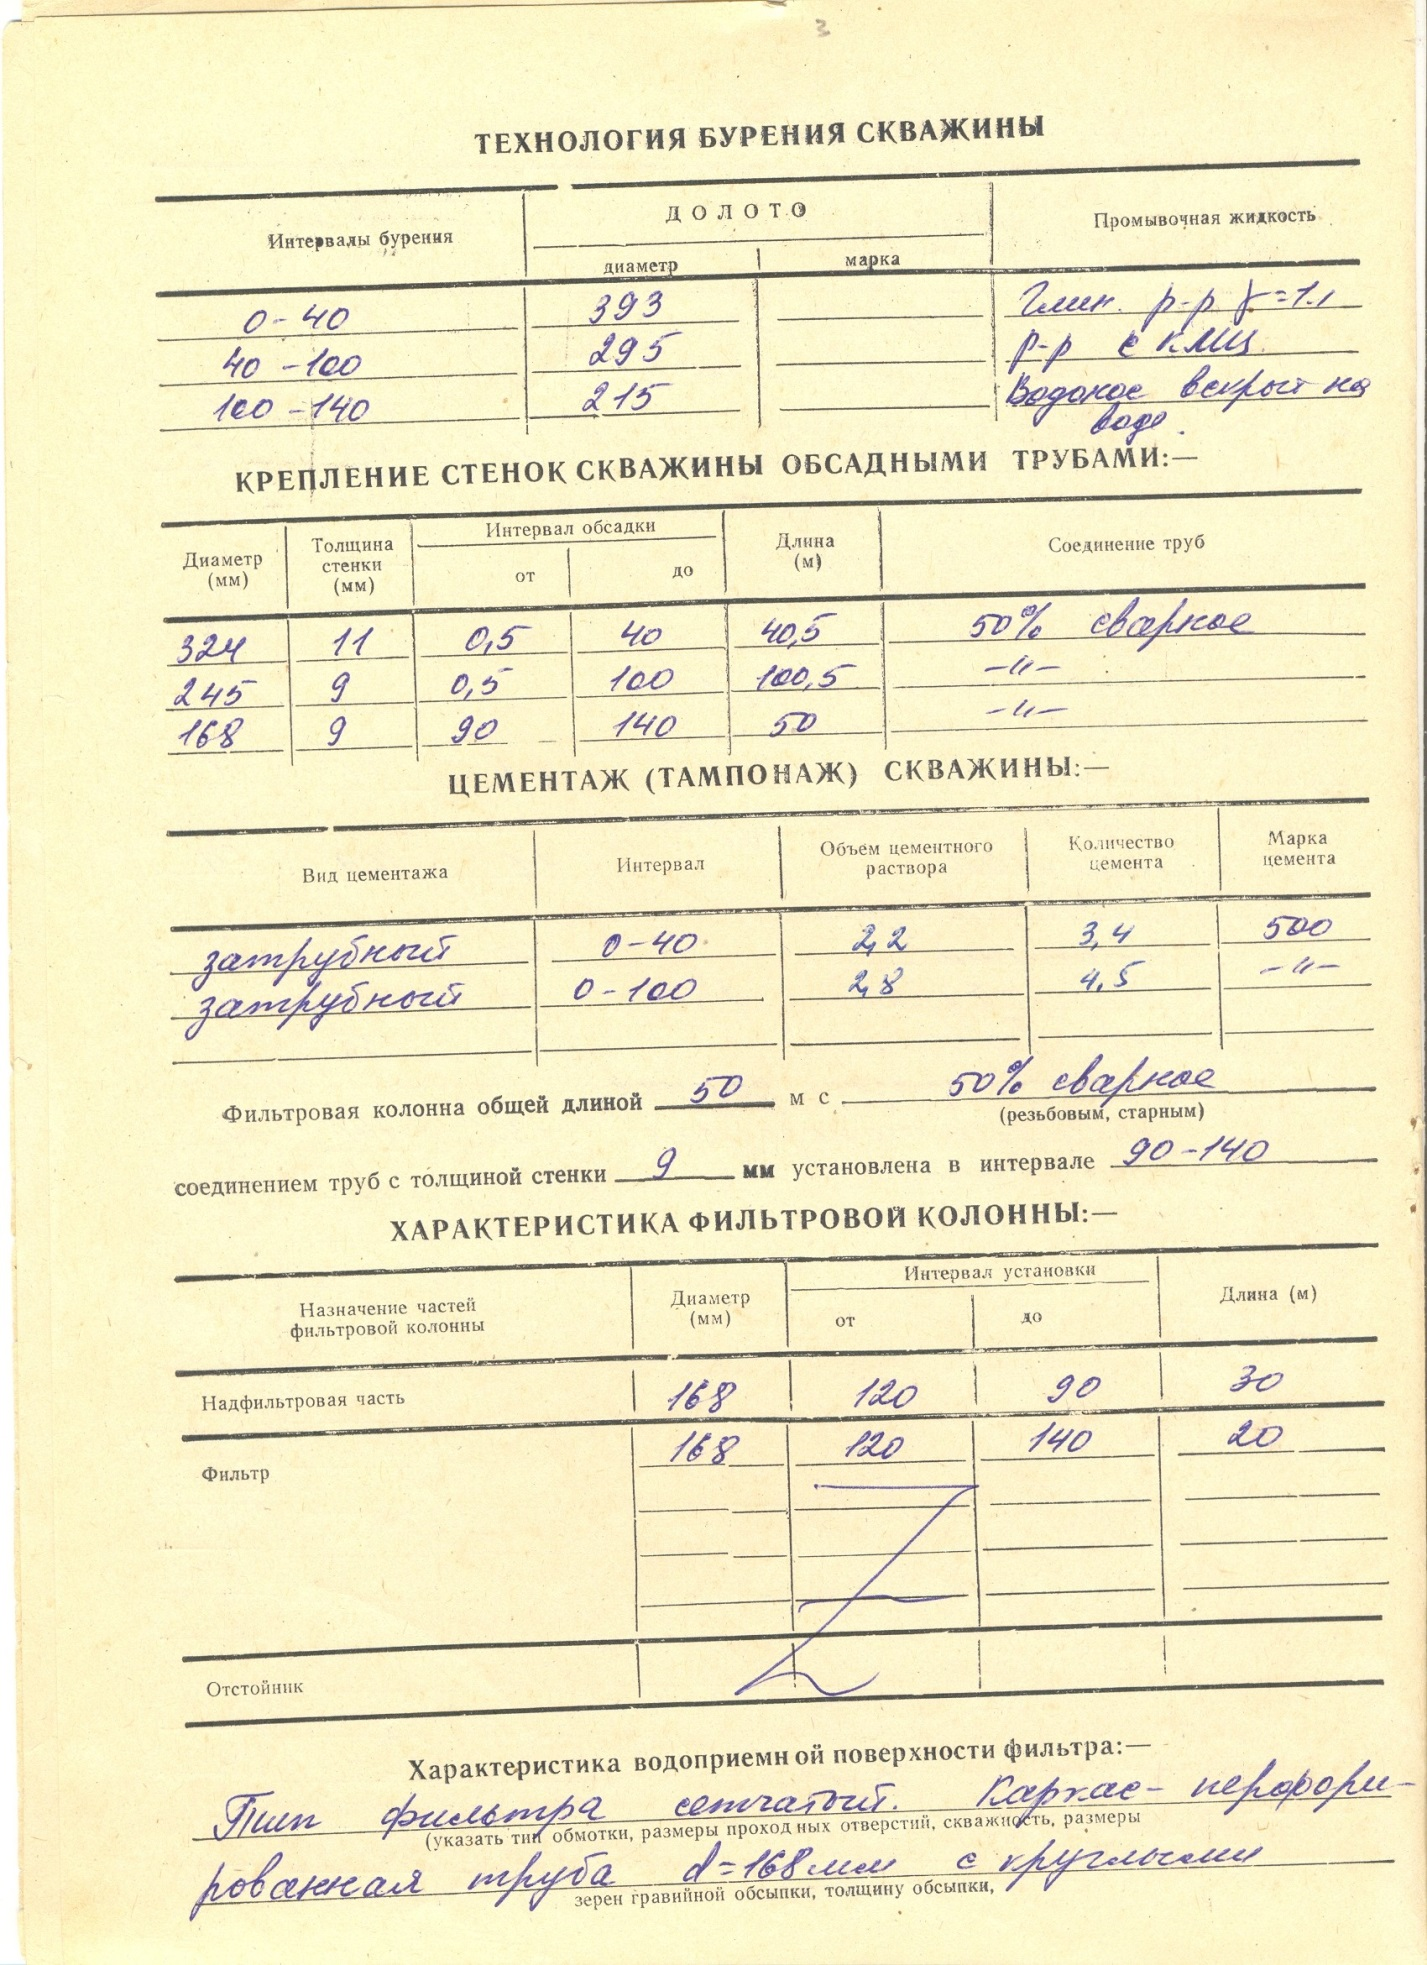 3
ТЕХНОЛОГИЯ БУРЕНИЯ СКВАЖИНЫ
Интервалы бурения ДОЛОТО Промывочная жидкость
диаметр марка
0-40 393 Глин. р-р γ=1.1
40-100 295 р-р с КМЦ
100-140 215 Водонос вскрыт на
воде.
КРЕПЛЕНИЕ СТЕНОК СКВАЖИНЫ ОБСАДНЫМИ ТРУБАМИ:—
Диаметр (мм) Толщина стенки (мм) Интервал обсадки Длина (м) Соединение труб
от до
324 11 0,5 40 40,5 50% сварное
245 9 0,5 100 100,5 -"-
168 9 90 140 50 -"-
ЦЕМЕНТАЖ (ТАМПОНАЖ) СКВАЖИНЫ:—
Вид цементажа Интервал Объем цементного раствора Количество цемента Марка цемента
затрубный 0-40 2,2 3,4 500
затрубный 0-100 2,8 4,5 -"-
Фильтровая колонна общей длиной 50 м с 50% сварное
(резьбовым, старным)
соединением труб с толщиной стенки 9 мм установлена в интервале 90-140
ХАРАКТЕРИСТИКА ФИЛЬТРОВОЙ КОЛОННЫ:—
Назначение частей фильтровой колонны Диаметр (мм) Интервал установки Длина (м)
от до
Надфильтровая часть 168 120 90 30
Фильтр 168 120 140 20
Отстойник
Характеристика водоприемной поверхности фильтра:—
Тип фильтра сетчатый. Каркас- перфори-
(указать тип обмотки, размеры проходных отверстий, скважность, размеры
рованная труба d=168мм с круглыми
зерен гравийной обсыпки, толщину обсыпки,